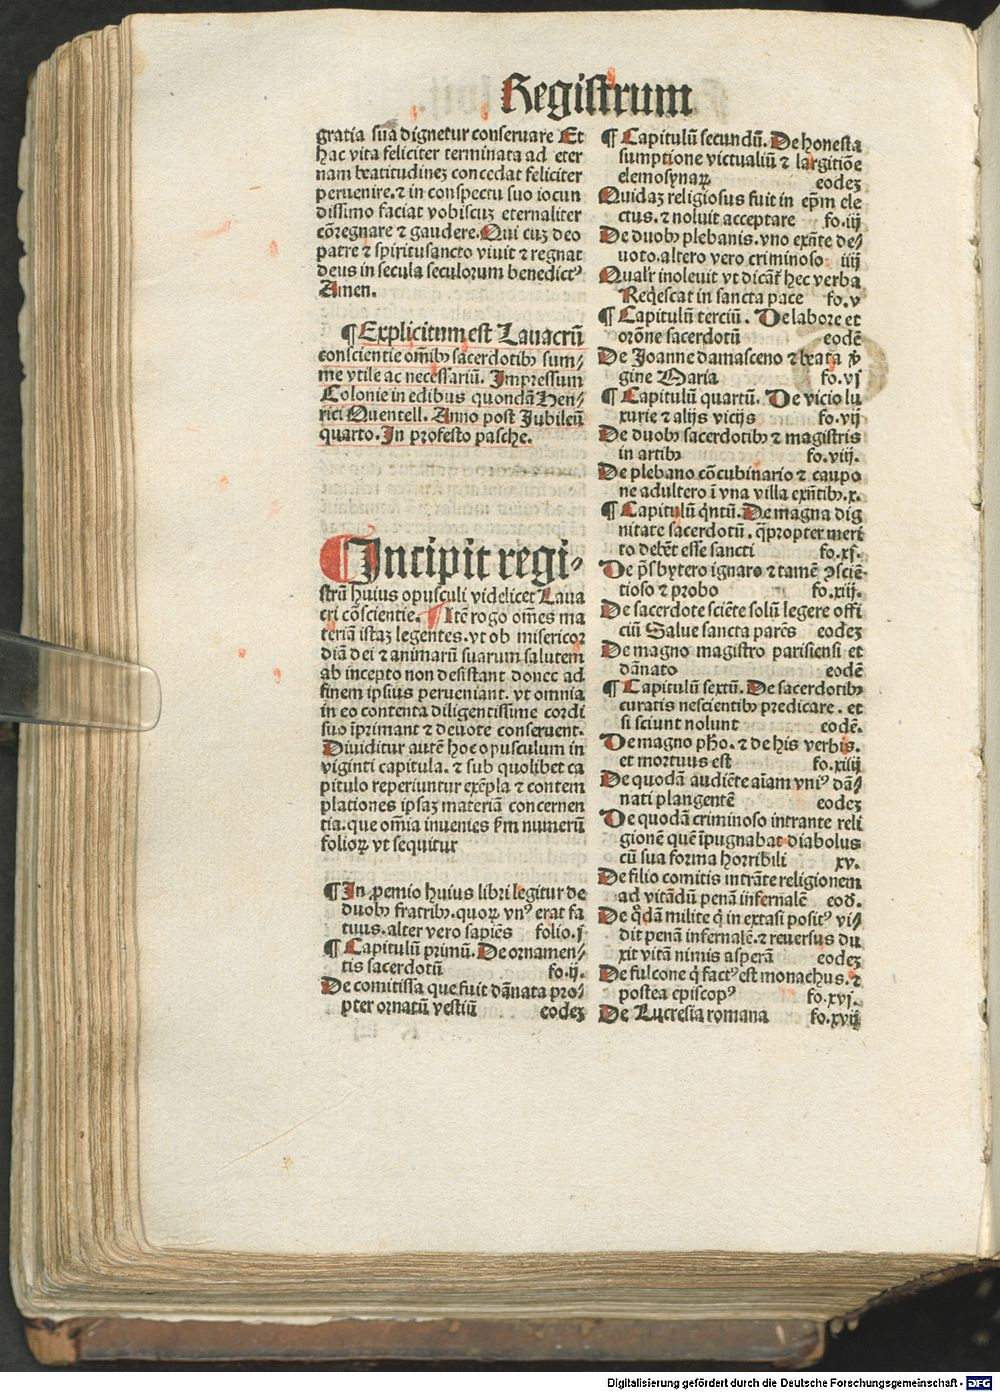 Registrum
gratia suā dignetur conseruare Et
hac vita feliciter terminata ad eter
nam beatitudineʒ concedat feliciter
peruenire. ⁊ in conspectu suo iocun
dissimo faciat vobiscuʒ eternaliter
cōregnare ⁊ gaudere. Qui cuʒ deo
patre ⁊ spiritusancto viuit ⁊ regnat
deus in secula seculorum benedictꝰ
Amen.
¶ Explicitum est Lauacrū
conscientie om̄ibꝫ sacerdotibꝫ sum⸗
me vtile ac necessariū. Impressum
Colonie in edibus quondā Hen⸗
rici Quentell. Anno post Jubileū
quarto. In profesto pasche.
¶ Incipit regi⸗
strū huius opusculi videlicet Laua
cri cōscientie. ¶ Itē rogo om̄es ma
teriā istaʒ legentes. vt ob misericor
diā dei ⁊ animarū suarum salutem
ab incepto non desistant donec ad
finem ipsius perueniant. vt omnia
in eo contenta diligentissime cordi
suo īprimant ⁊ deuote conseruent.
Diuiditur autē hoc opusculum in
viginti capitula. ⁊ sub quolibet ca
pitulo reperiuntur exēpla ⁊ contem
plationes ipsaʒ materiā concernen
tia. que om̄ia inuenies ẜm numerū
folioꝝ vt sequitur
¶ In ꝓemio huius libri legitur de
duobꝫ fratribꝫ. quoꝝ vnꝰ erat fa
tuus. alter vero sapiēs folio. j
¶ Capitulū primū. De ornamen⸗
tis sacerdotū fo. ij.
De comitissa que fuit dānata pro⸗
pter ornatū vestiū eodeʒ
¶ Capitulū secundū. De honesta
sumptione victualiū ⁊ largitiōe
elemosynaꝝ eodeʒ
Quidaʒ religiosus fuit in ep̄m ele
ctus. ⁊ noluit acceptare fo. iij
De duobꝫ plebanis. vno exn̄te de⸗
uoto. altero vero criminoso iiij
Qualr̄ inoleuit vt dicāt̄ hec verba
Reqescat in sancta pace fo. v
¶ Capitulū terciū. De labore et
orōne sacerdotū eodē
De Joanne damasceno ⁊ beata v̓
gine Maria fo. vj
¶ Capitulū quartū. De vicio lu
xurie ⁊ alijs vicijs fo. vij
De duobꝫ sacerdotibꝫ ⁊ magistris
in artibꝫ fo. viij.
De plebano cōcubinario ⁊ caupo
ne adultero ī vna villa exn̄tibꝫ. x.
¶ Capitulū qͥntū. De magna dig
nitate sacerdotū. q̄propter meri
to debēt esse sancti fo. xj.
De p̄sbytero ignaro ⁊ tamē ꝯsciē⸗
tioso ⁊ probo fo. xiij.
De sacerdote sciēte solū legere offi
ciū Salue sancta parēs eodeʒ
De magno magistro parisiensi et
dānato eodē
¶ Capitulū sextū. De sacerdotibꝫ
curatis nescientibꝫ predicare. et
si sciunt nolunt eodē.
De magno ph̄o. ⁊ de his verbis.
et mortuus est fo. xiiij
De quodā audiēte aīam vniꝰ dā⸗
nati plangentē eodeʒ
De quodā criminoso intrante reli
gionē quē īpugnabat diabolus
cū sua forma horribili xv.
De filio comitis intrāte religionem
ad vitādū penā infernalē eod.
De qͦdā milite qͥ in extasi positꝰ vi⸗
dit penā infernalē. ⁊ reuersus du
xit vitā nimis asperā eodeʒ
De fulcone qͥ factꝰ est monachus. ⁊
postea episcopꝰ fo. xvj.
De Lucresia romana fo. xvij
Digitalisierung gefördert durch die Deutsche Forschungsgemeinschaft - DFG